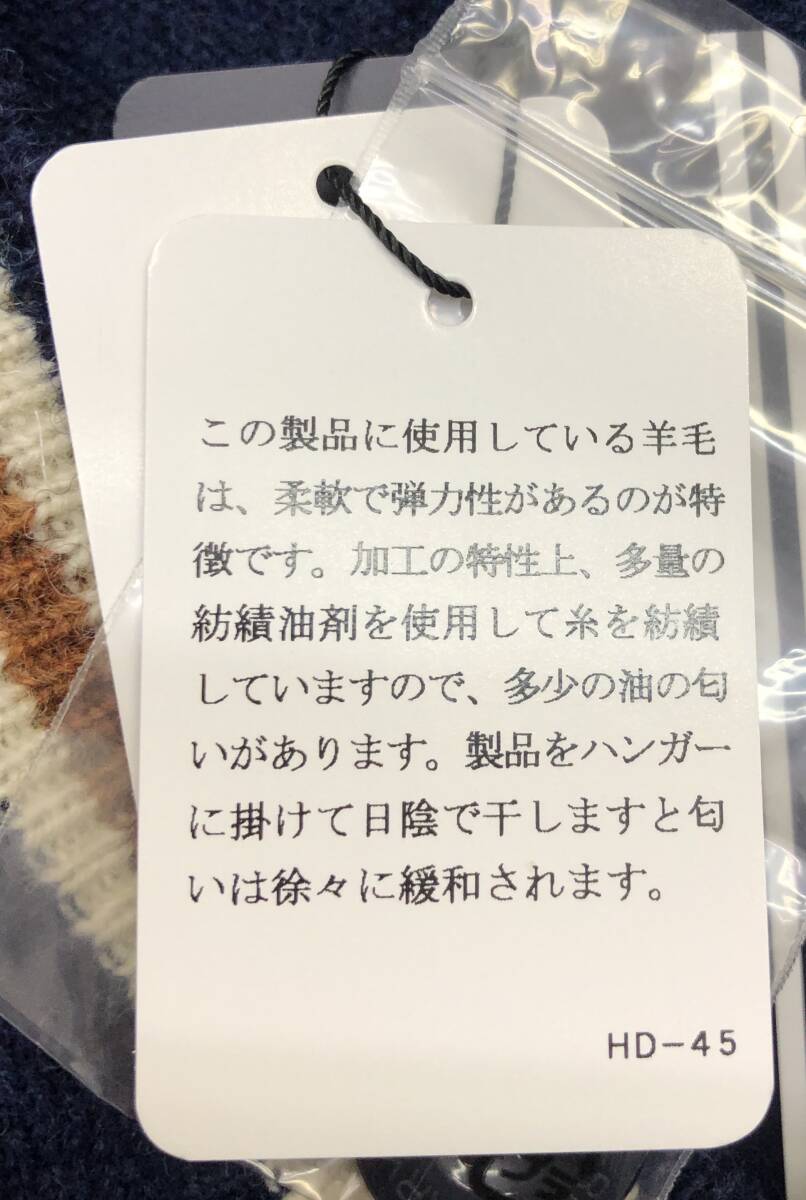 この製品に使用している羊毛
は、柔軟で弾力性があるのが特
徴です。加工の特性上、多量の
紡績油剤を使用して糸を紡績
していますので、多少の油の匂
いがあります。製品をハンガー
に掛けて日陰で干しますと匂
いは徐々に緩和されます。
HD-45